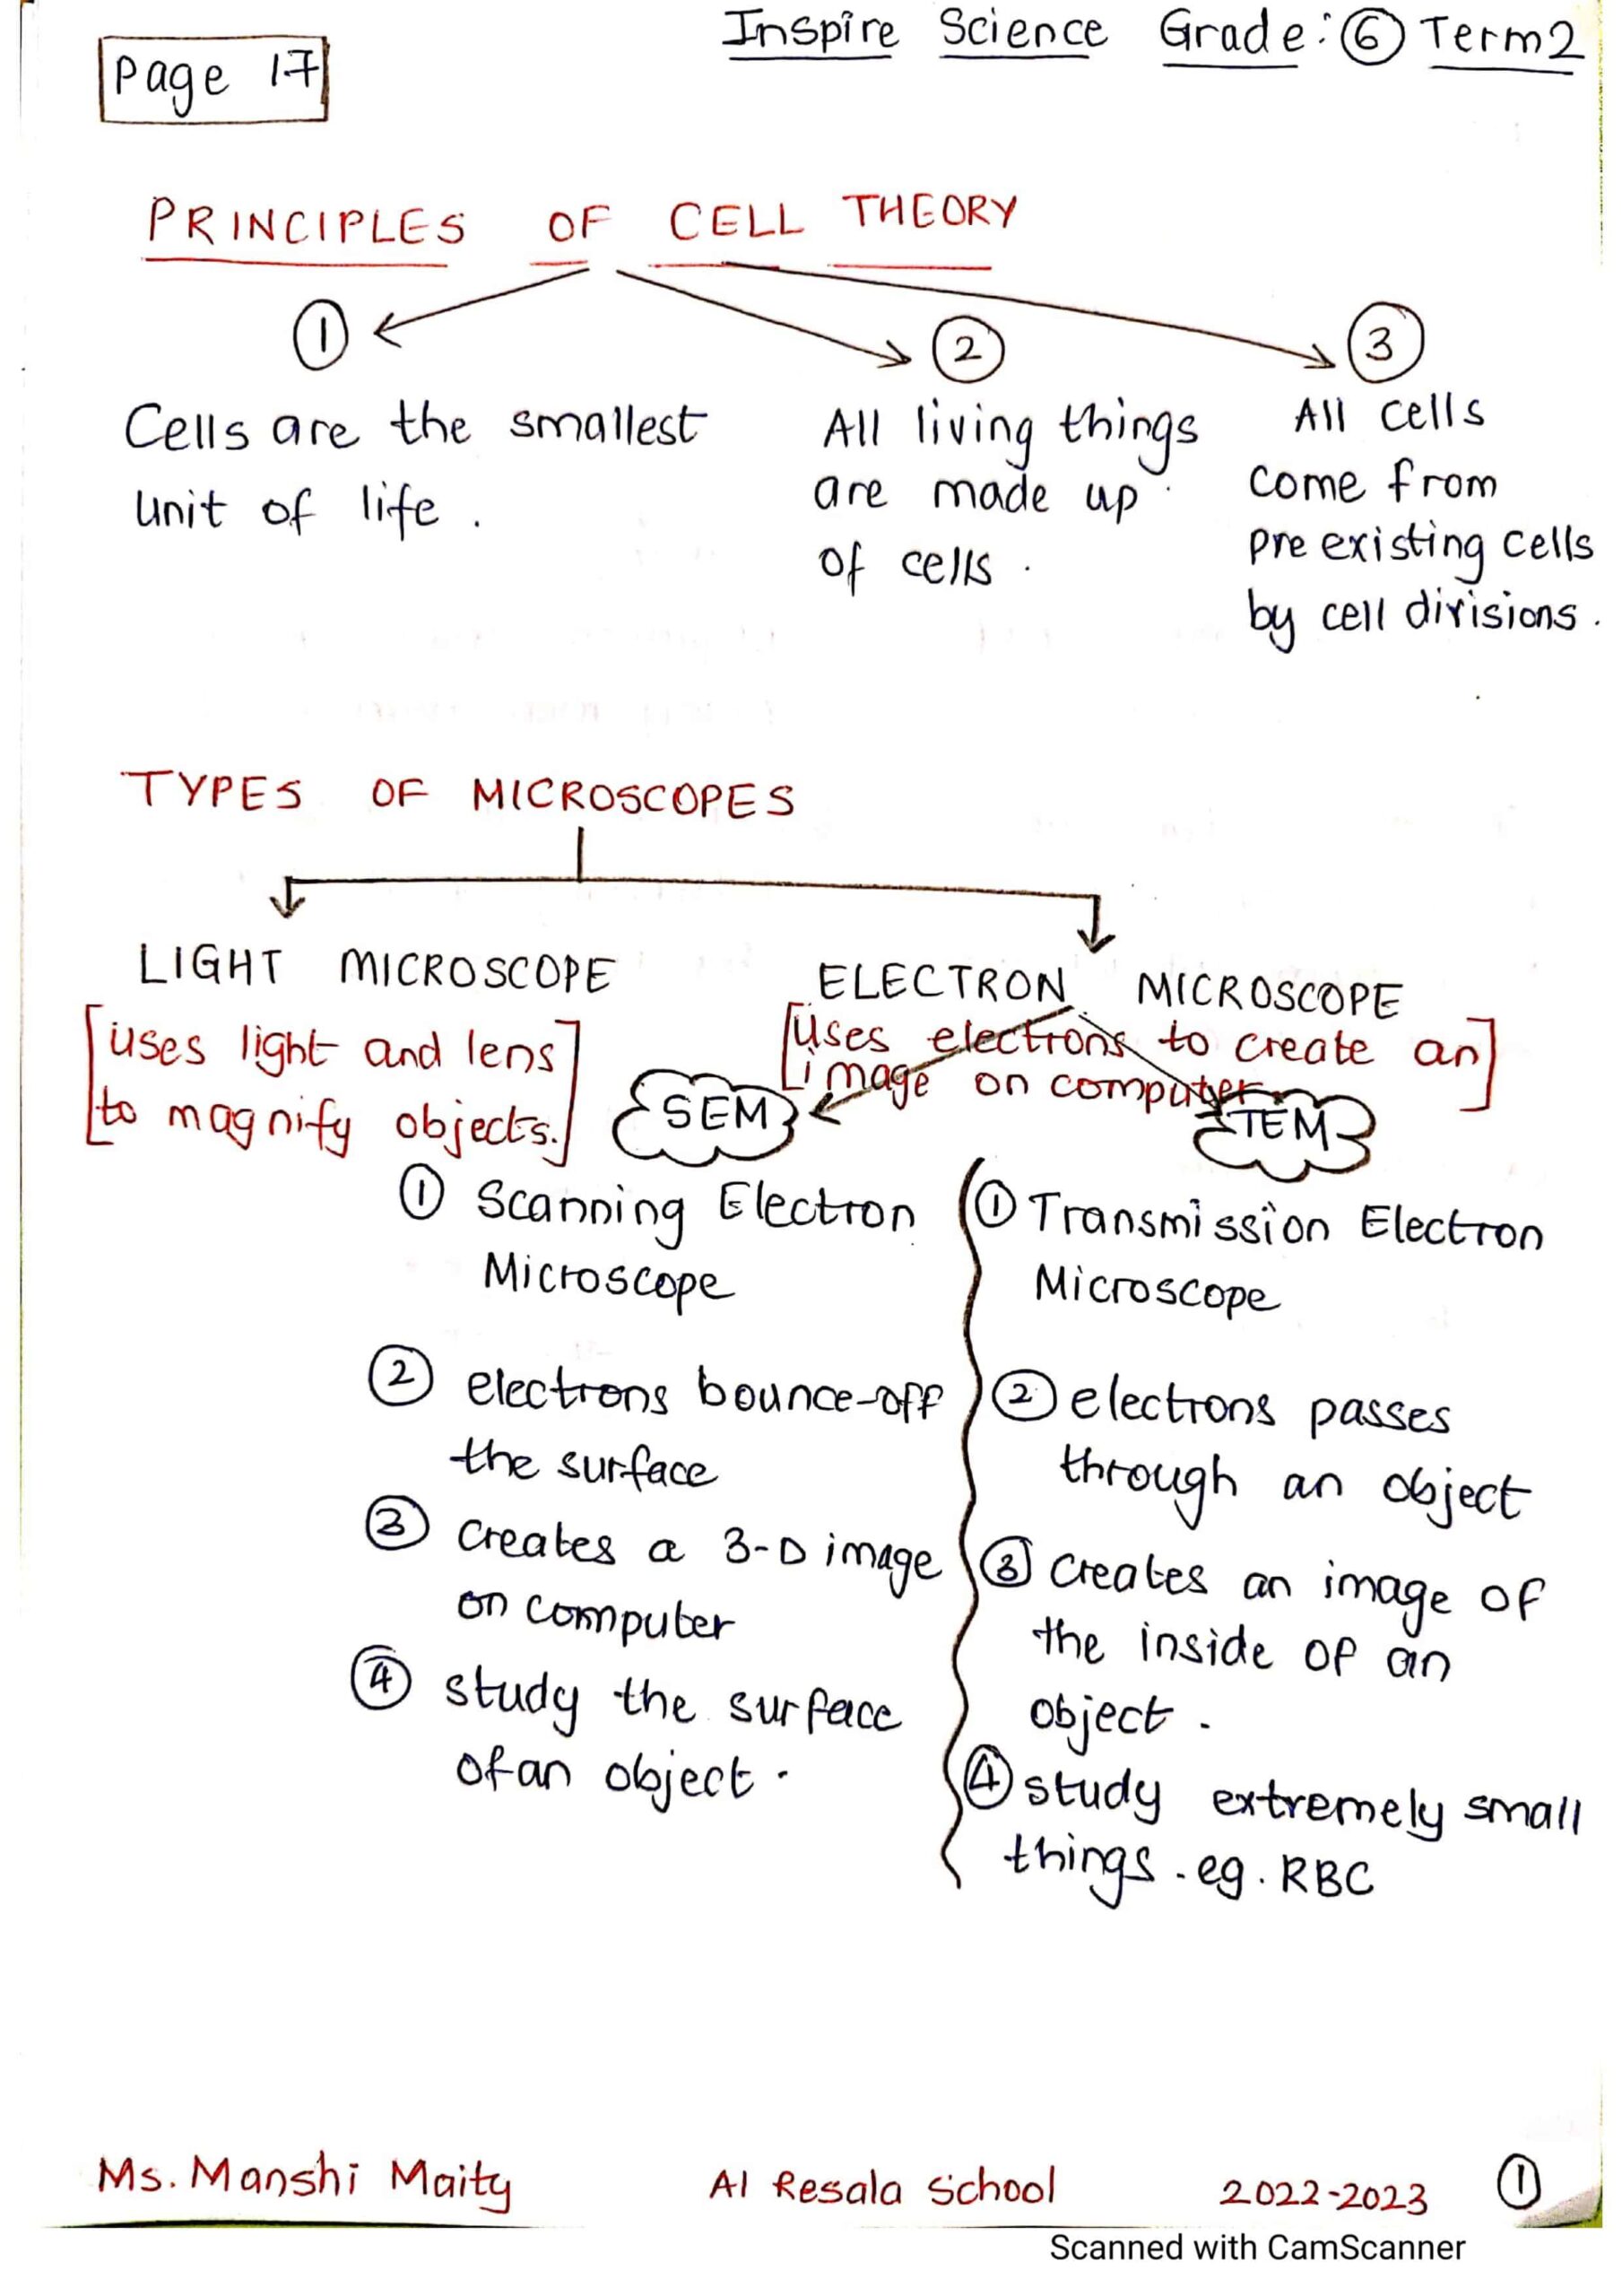 Inspire Science Grade: ⑥ Term2
Page 17
PRINCIPLES OF CELL THEORY
①
Cells are the smallest
unit of life.
②
All living things
are made up
of cells.
③
All cells
come from
pre existing cells
by cell divisions.
TYPES OF MICROSCOPES
LIGHT MICROSCOPE
[uses light and lens
to magnify objects.]
ELECTRON MICROSCOPE
[uses electrons to create an
image on computer]
SEM
① Scanning Electron
Microscope
② electrons bounce-off
the surface
③ creates a 3-D image
on computer
④ study the surface
of an object.
TEM
① Transmission Electron
Microscope
② electrons passes
through an object
③ creates an image of
the inside of an
object.
④ study extremely small
things. eg. RBC
Ms. Manshi Maity Al Resala School 2022-2023 ①
Scanned with CamScanner